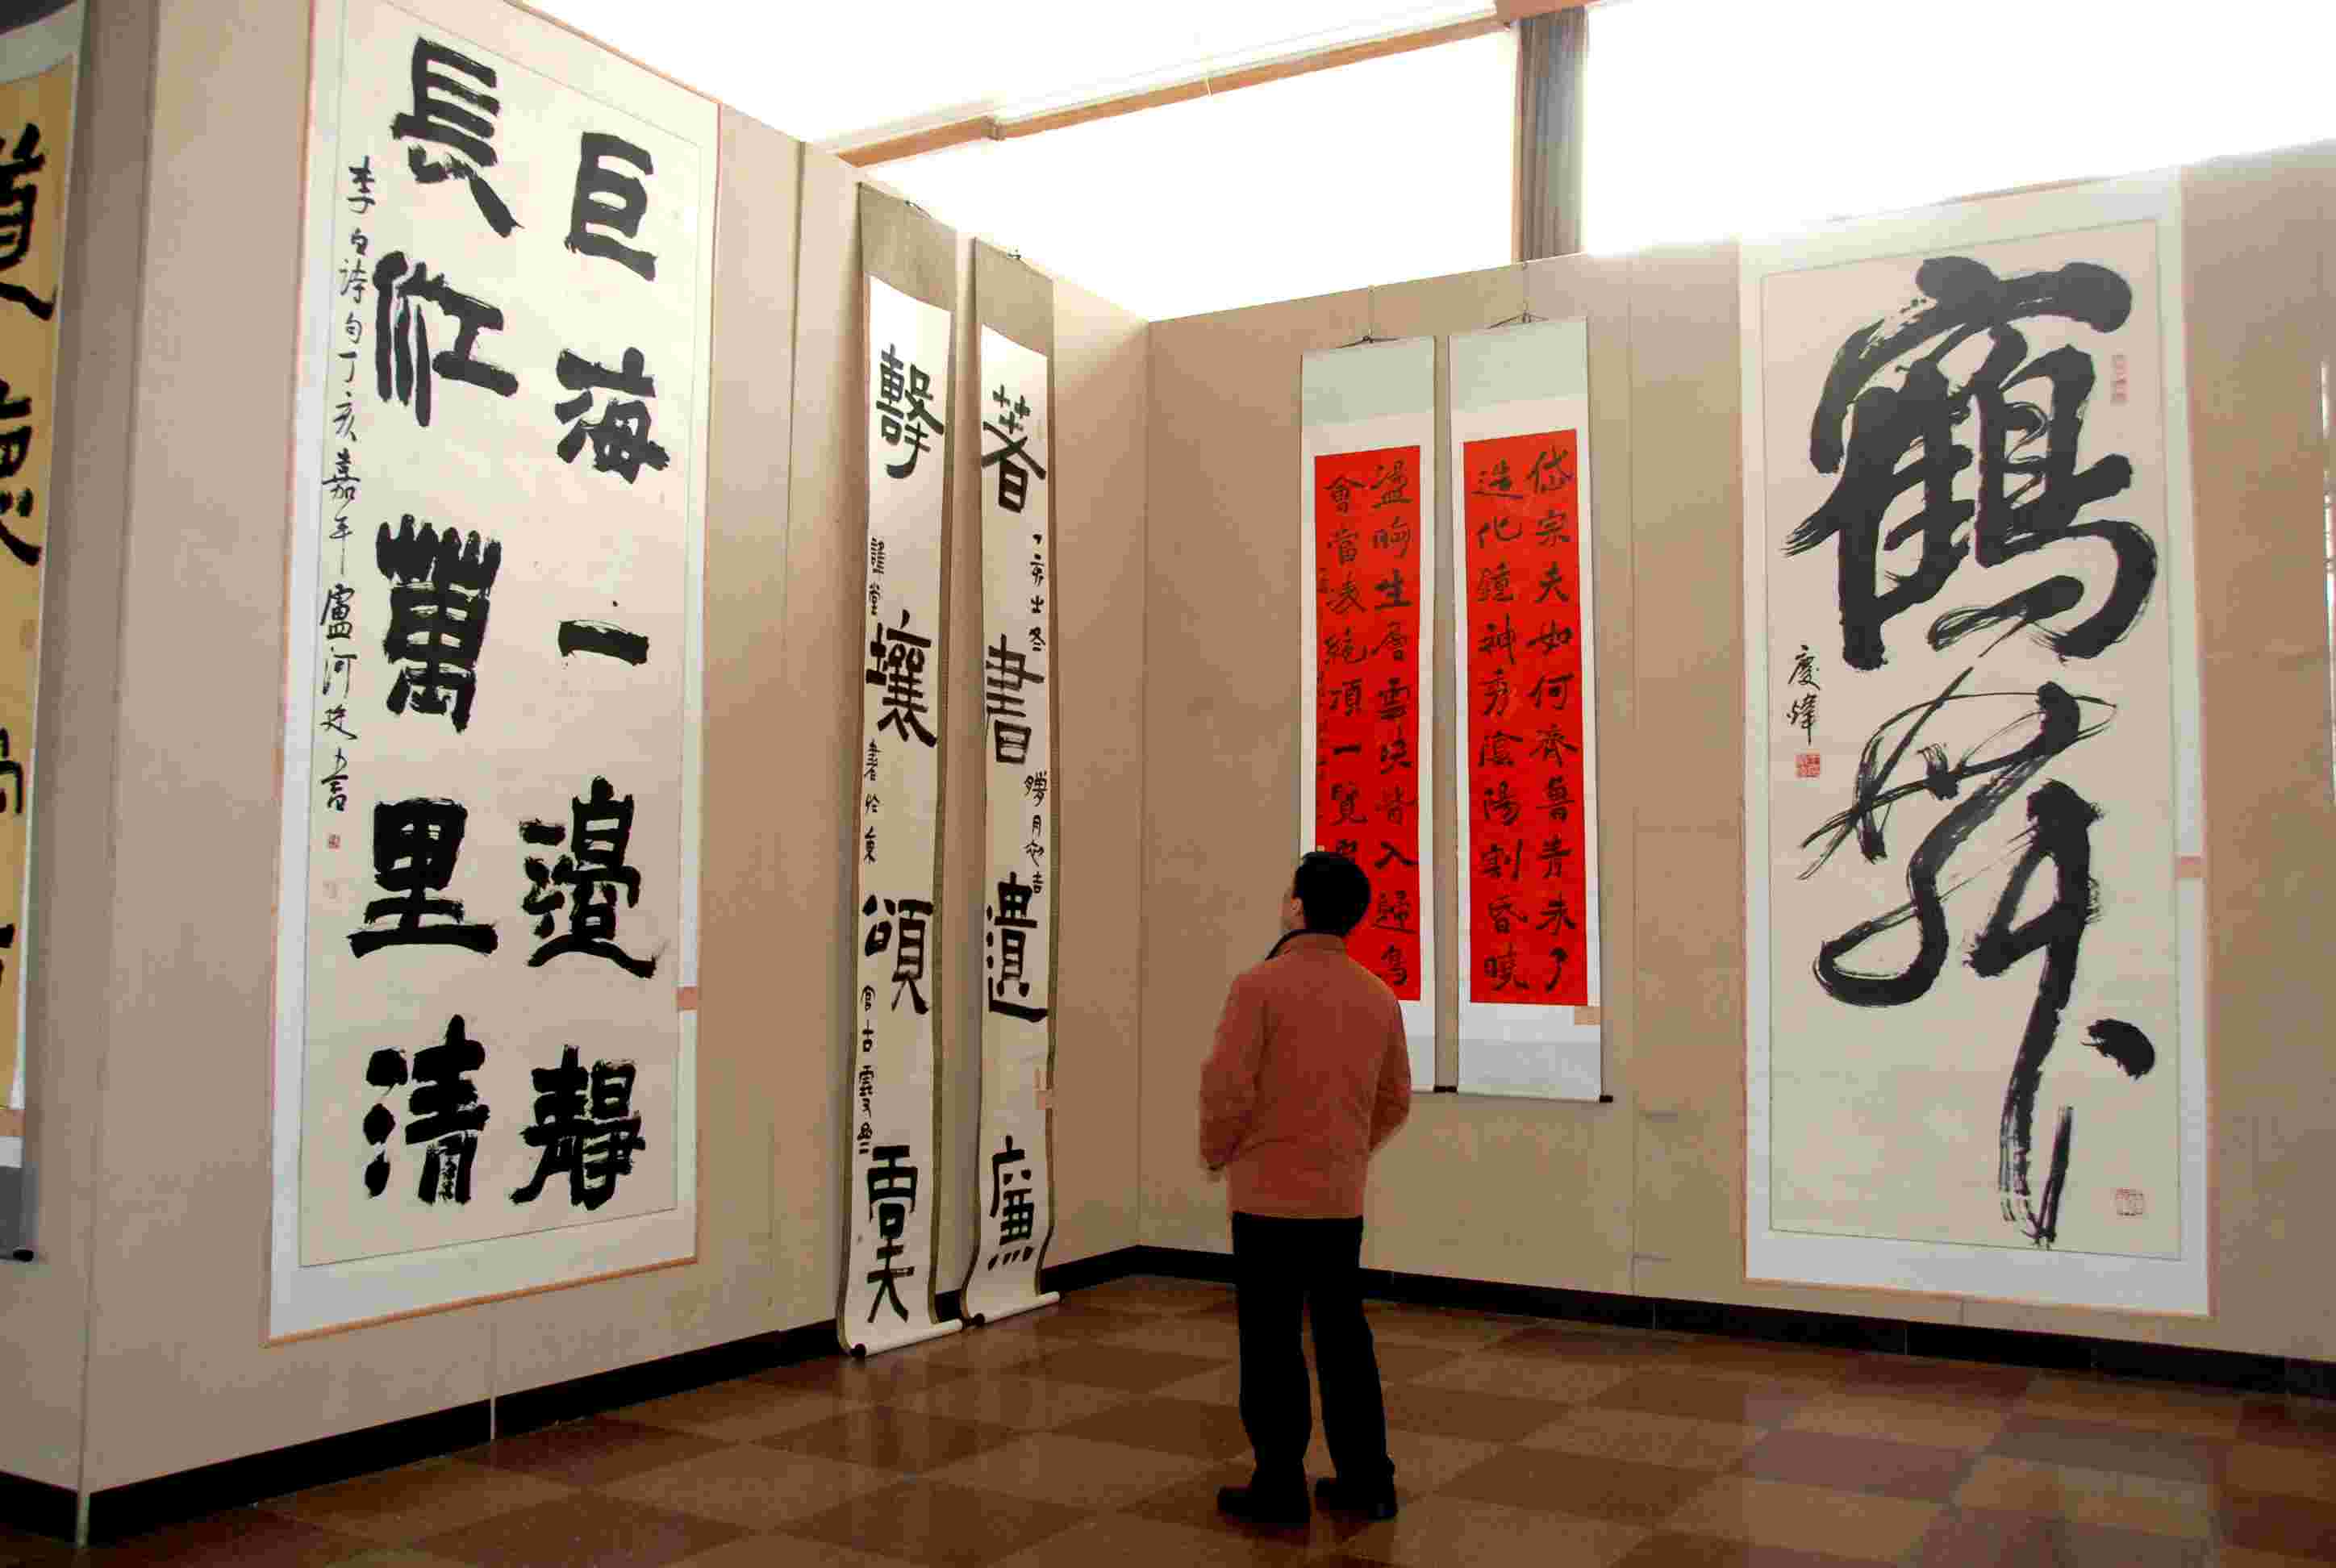 巨海一邊靜
長江萬里清
李白詩句丁亥嘉平盧河廷書
著書遺廉
亥㞢冬臘月初吉
擊壤頌
謹堂書於東官古
岱宗夫如何齊魯青未了
造化鐘神秀陰陽割昏曉
盪胸生層雲決眥入歸鳥
會當凌絕頂一覽
鶴舞
慶煒